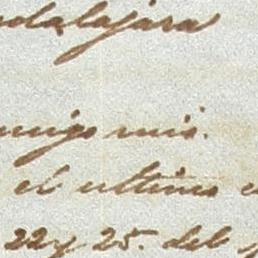 adalajara
amigo mio.
el ultimo
22 y 25. del